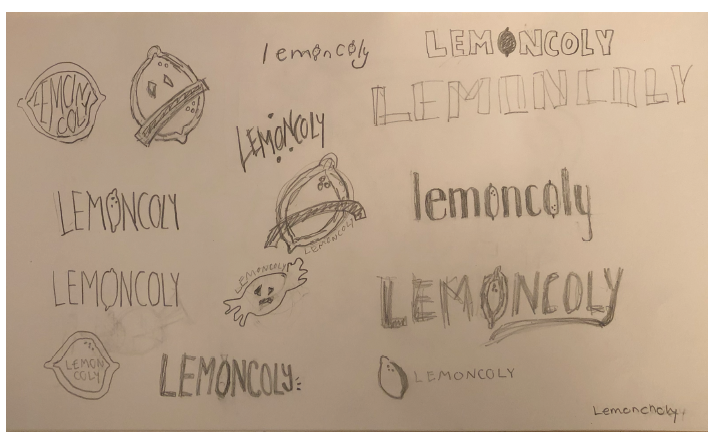 lemoncoly
LEMONCOLY
LEMONCOLY
LEMON
COLY
LEMONCOLY
LEMONCOLY
lemoncoly
LEMONCOLY
LEMONCOLY
LEMONCOLY
LEMONCOLY
LEMON
COLY
LEMONCOLY
LEMONCOLY